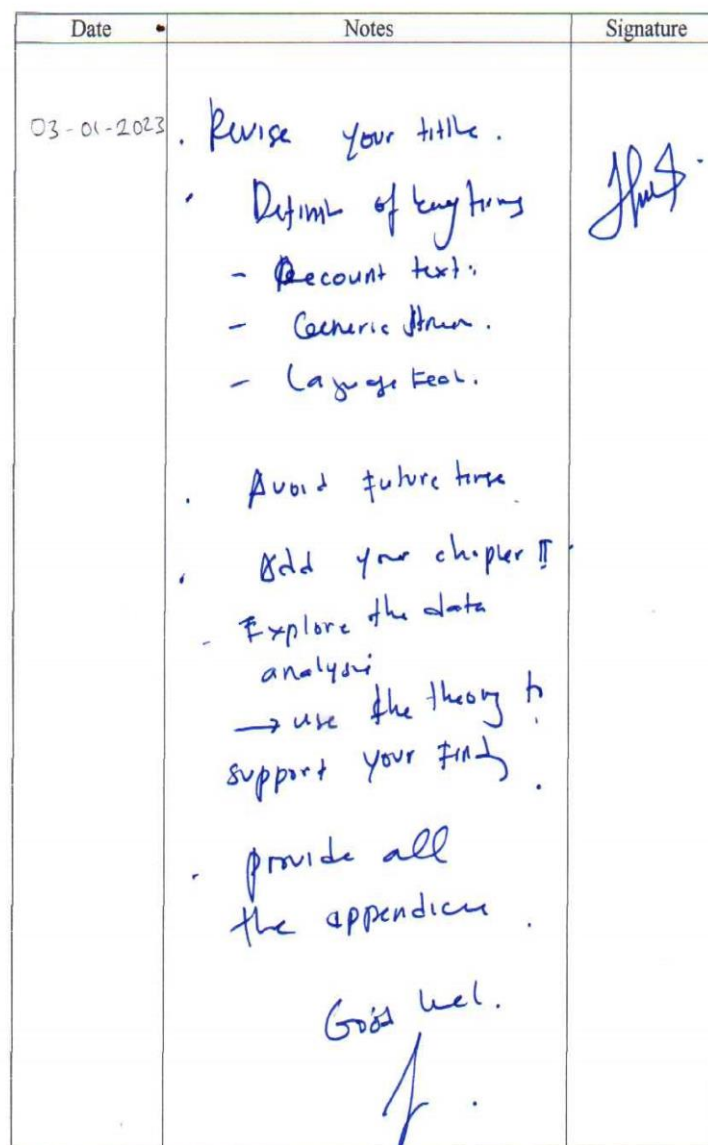 Date Notes Signature
03-01-2023 . Revise your title.
. of key terms
- Recount text.
- Generic
- Language Feat.
. Avoid future tense
. Add your chapter II.
- Explore the data
analysis
→ use the theory to
support your
. provide all
the appendices.
Good luck.